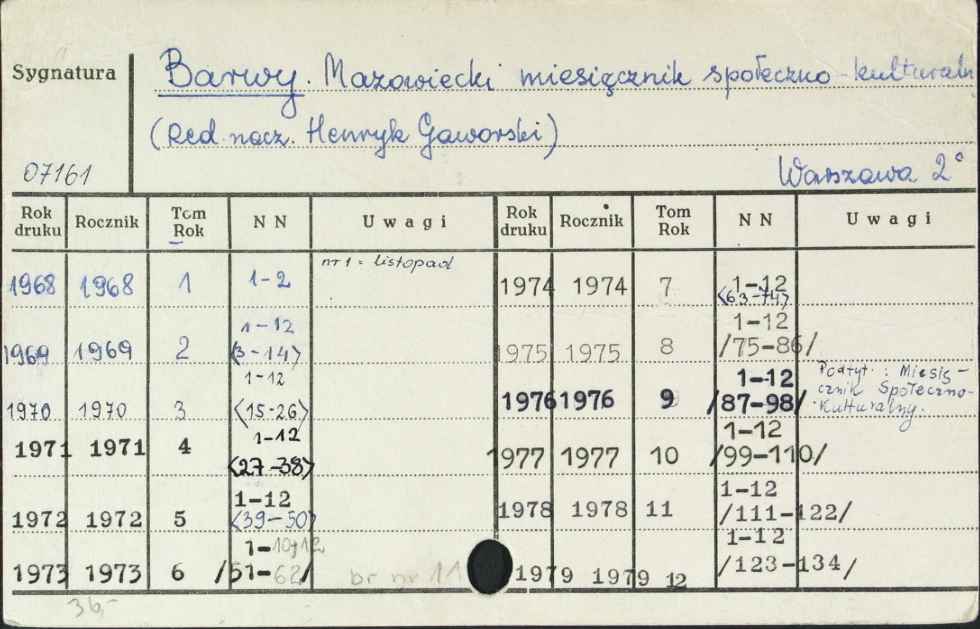 Sygnatura
Barwy. Mazowiecki miesięcznik społeczno-kulturaln
(Red. nacz. Henryk Gaworski)
07161
Warszawa 2°
Rok druku Rocznik Tom Rok NN Uwagi Rok druku Rocznik Tom Rok NN Uwagi
nr 1 = listopad
1968 1968 1 1-2 1974 1974 7 1-12
<63-74>
1-12 1-12
1969 1969 2 <3-14> 1975 1975 8 /75-86/
1-12 1-12 Podtyt.: Miesię-
1970 1970 3 <15-26> 1976 1976 9 /87-98/ cznik Społeczno-
Kulturalny.
1971 1971 4 1-12 1-12
<27-38> 1977 1977 10 /99-110/
1-12 1-12
1972 1972 5 <39-50> 1978 1978 11 /111-122/
1-10,12 1-12
1973 1973 6 /51-62/ br nr 11 1979 1979 12 /123-134/
36,-